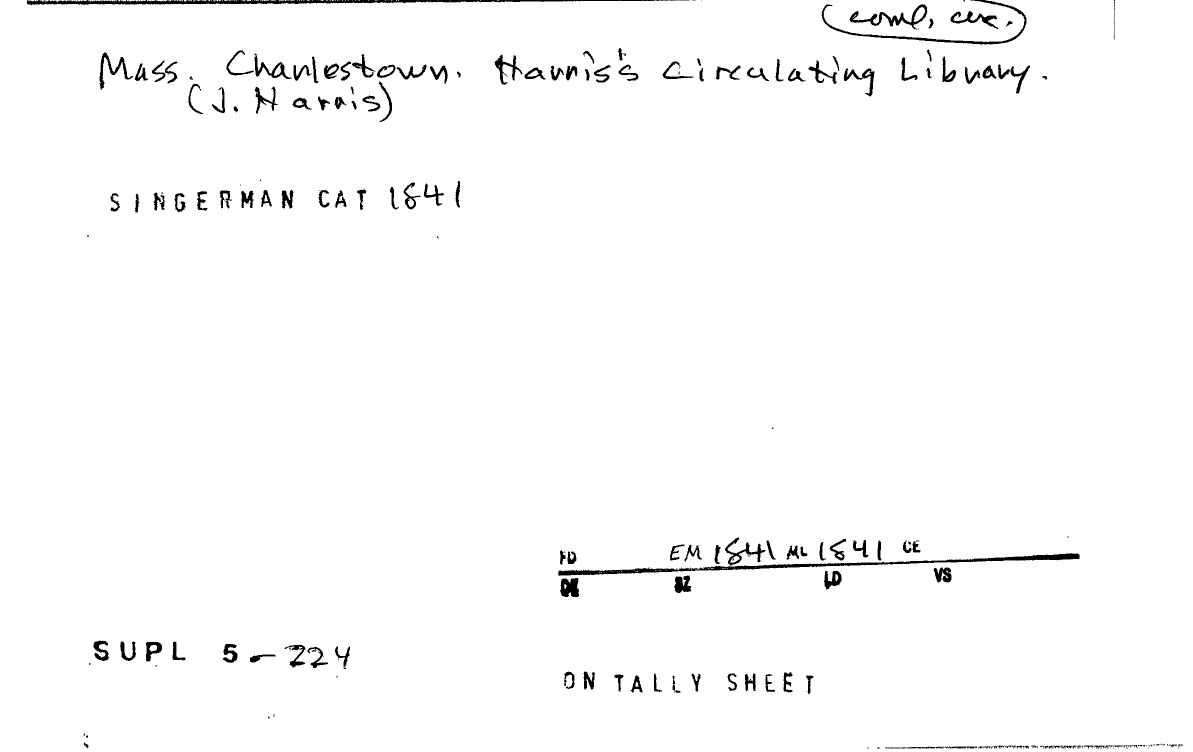 (coml, circ.)
Mass. Charlestown. Harris's Circulating Library.
(J. Harris)
SINGERMAN CAT 1841
FD EM 1841 ML 1841 CE
SZ LD VS
SUPL 5-224
ON TALLY SHEET